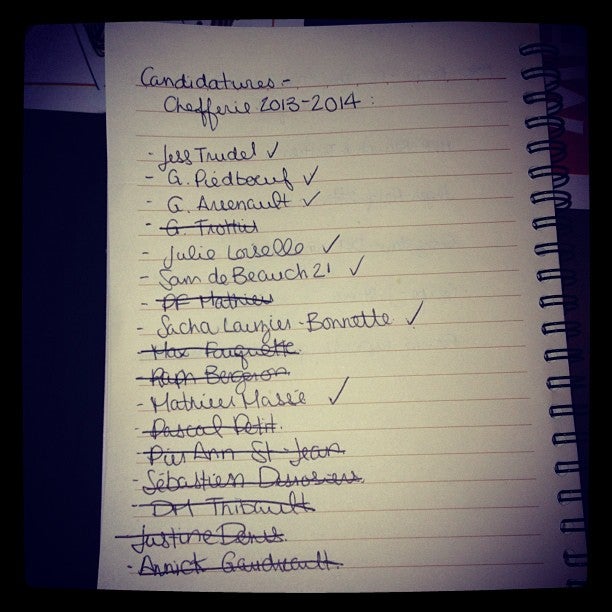 Candidatures -
Chefferie 2013-2014 :
- Jess Trudel ✓
- G. Piedboeuf ✓
- G. Arsenault ✓
- G. Trottier
- Julie Loiselle ✓
- Sam de Beauch 21 ✓
- PF Mathieu
- Sacha Lauzier-Bonnette ✓
- Max Fauquette
- Raph Bergeron
- Mathieu Massé ✓
- Pascal Petit
- Pier Ann St-Jean
- Sébastien Desrosiers
- Thibault
- Justine Denis
- Annick Gaudreault